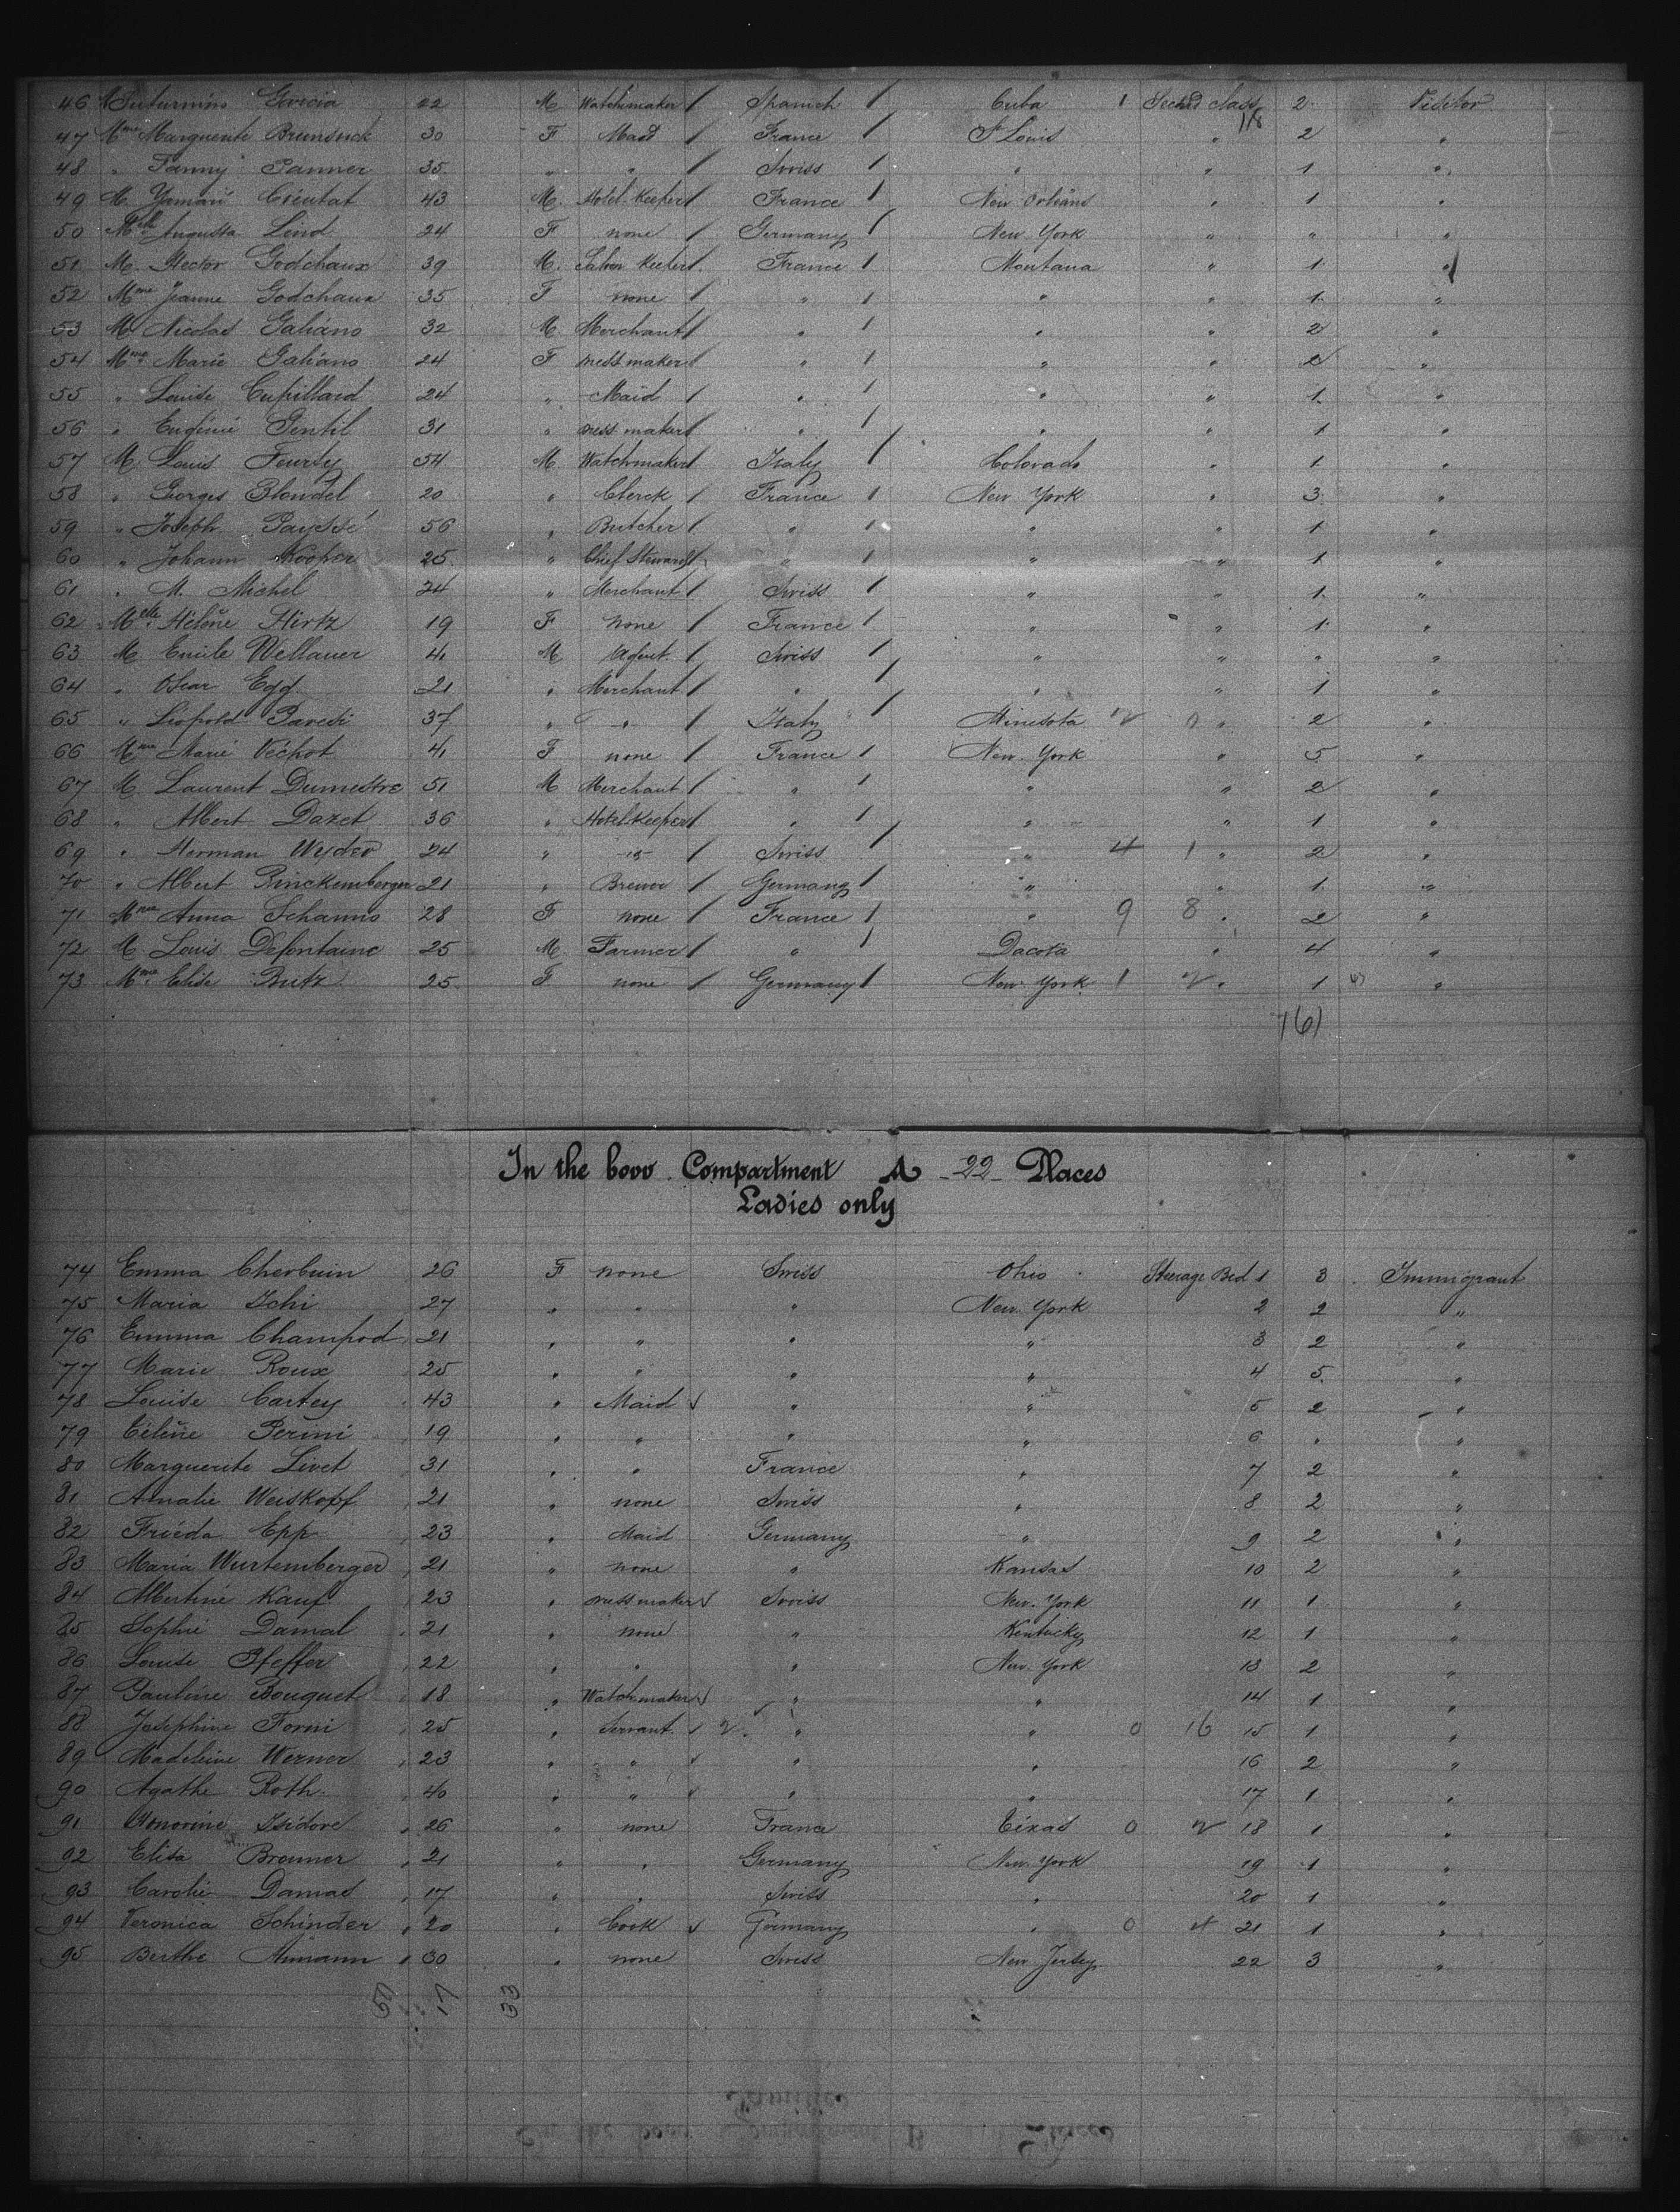 46 M Suturnino Garcia 22 M Watchmaker / Spanish / Cuba 1 Second class 2 Visitor
118
47 Mme Marguerite Brunswick 30 F Maid / France / St Louis " 2 "
48 " Fanny Panner 35 " " / Swiss / " " 1 "
49 M Créutat 43 M. Hotel Keeper / France / New Orléans " 1 "
50 Melle Augusta Lind 24 F none / Germany / New York " " "
51 M. Hector Godchaux 39 M. Keeper / France / Montana " 1 "
52 Mme Jeanne Godchaux 35 F none / " / " " 1 "
53 M Nicolas Galiano 32 M. Merchant / " / " " 2 "
54 Mme Marie Galiano 24 F Dressmaker / " / " " 2 "
55 " Louise Cupillard 24 " Maid / " / " " 1 "
56 " Eugénie Gentil 31 " Dress maker / " / " " 1 "
57 M. Louis Feursy 54 M. Watchmaker / Italy / Colorado " 1 "
58 " Georges Blondel 20 " Clerck / France / New York " 3 "
59 " Joseph Payssé 56 " Butcher / " / " " 1 "
60 " Johann Kooper 25 " Chief Steward / " / " " 1 "
61 " M. Michel 24 " Merchant / Swiss / " " 1 "
62 Melle Hélène Hirtz 19 F none / France / " " 1 "
63 M Emile Wellauer 41 M Agent / Swiss / " " " "
64 " Oscar Egg 21 " Merchant / " / " " 1 "
65 " Léopold Paredi 37 " " / Italy / Minesota 2 " 2 "
66 Mme Marie Véchot 41 F none / France / New York " 5 "
67 M Laurent Dumestre 51 M Merchant / " / " " 2 "
68 " Albert Dazet 36 " Hotel Keeper / " / " " 1 "
69 " Herman Wyder 24 " " / Swiss / " 4 1 " 2 "
70 " Albert Rinckemberger 21 " Brewer / Germany / " " 1 "
71 Mme Anna Schanno 28 F none / France / " 9 8 " 2 "
72 M Louis Defontaine 25 M Farmer / " / Dacota " 4 "
73 Mme Elise Butz 25 F none / Germany / New York 1 2 " 1 "
161
In the bow Compartment A -22- Places
Ladies only
74 Emma Cherbuin 26 F none Swiss Ohio Steerage Bed 1 3 Immigrant
75 Maria Ischi 27 " " " New York 2 2 "
76 Emma Champod 21 " " " " 3 2 "
77 Marie Roux 25 " " " " 4 5 "
78 Louise Cartey 43 " Maid " " 5 2 "
79 Céline Perini 19 " " " " 6 " "
80 Marguerite Livet 31 " " France " 7 2 "
81 Amalie Weiskopf 21 " none Swiss " 8 2 "
82 Frieda Epp 23 " Maid Germany " 9 2 "
83 Maria Wurtemberger 21 " none " Kansas 10 2 "
84 Albertine Kauf 23 " Dressmaker Swiss New York 11 1 "
85 Sophie Damal 21 " none " Kentucky 12 1 "
86 Louise Pfeffer 22 " " " New York 13 2 "
87 Pauline Bouquet 18 " Watchmaker " " 14 1 "
88 Josephine Forni 25 " Servant 2 " " 0 16 15 1 "
89 Madeleine Werner 23 " " " " 16 2 "
90 Agathe Roth 40 " " " " 17 1 "
91 Honorine Isidore 26 " none France Texas 0 2 18 1 "
92 Elisa Bronner 21 " " Germany New York 19 1 "
93 Carolie Damas 17 " " Swiss " 20 1 "
94 Veronica Schinder 20 " Cook Germany " 0 4 21 1 "
95 Berthe Amann 30 " none Swiss New Jersey 22 3 "
17 33